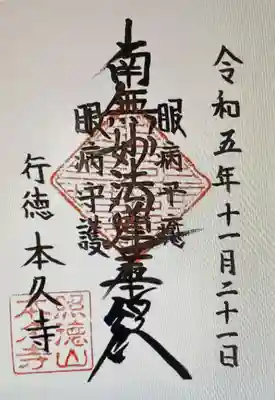 令和五年十一月二十一日
眼病平癒
南無妙法蓮華経
眼病守護
行徳 本久寺
照徳山
本久寺